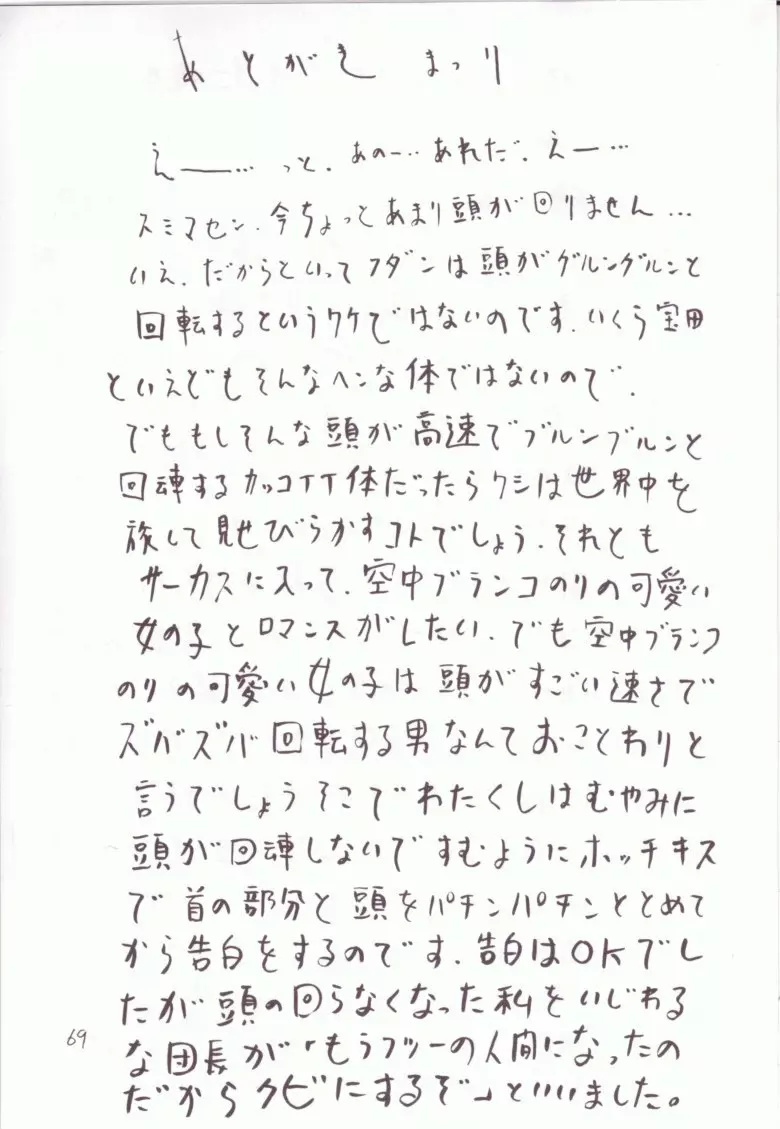 あとがき まつり
えー──…っと、あのー…あれだ、えー…
スミマセン、今ちょっとあまり頭が回りません…
いえ、だからといってフダンは頭がグルングルンと
回転するというワケではないのです、いくら宝田
といえどもそんなヘンな体ではないので、
でももしそんな頭が高速でブルンブルンと
回転するカッコイイ体だったらワシは世界中を
旅して見せびらかすコトでしょう、それとも
サーカスに入って、空中ブランコのりの可愛い
女の子とロマンスがしたい、でも空中ブランコ
のりの可愛い女の子は頭がすごい速さで
ズバズバ回転する男なんておことわりと
言うでしょうそこでわたくしはむやみに
頭が回転しないですむようにホッチキス
で首の部分と頭をパチンパチンととめて
から告白をするのです、告白はOKでし
たが頭の回らなくなった私をいじわる
な団長が「もうフツーの人間になったの
だからクビにするぞ」といいました。
69